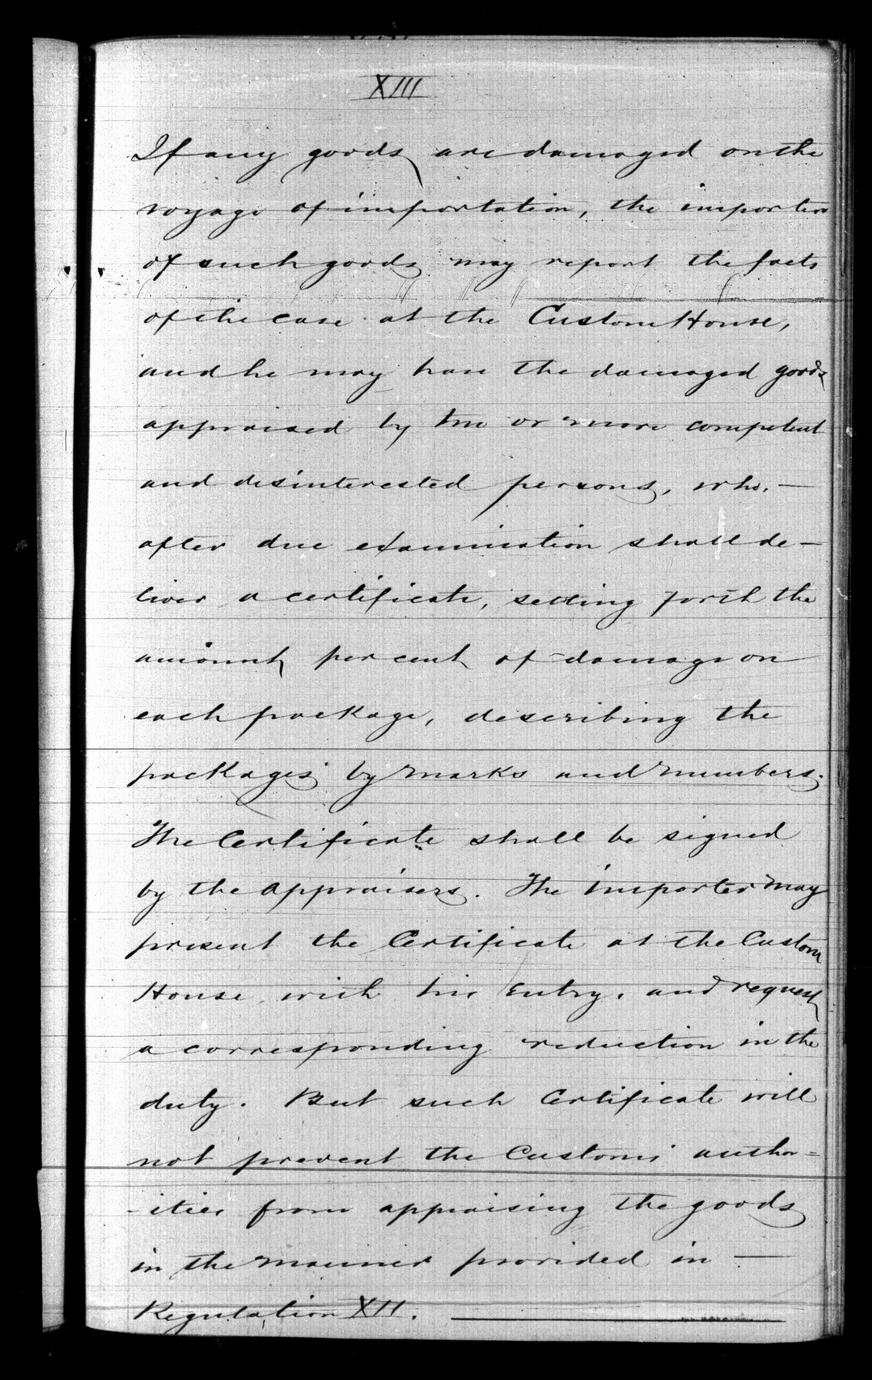 XIII
If any goods are damaged on the
voyage of importation, the importer
of such goods may report the facts
of the case at the Custom House,
and he may have the damaged goods
appraised by two or more competent
and disinterested persons, who, —
after due examination shall de—
liver a certificate, setting forth the
amount per cent of damage on
each package, describing the
packages by marks and numbers.
The Certificate shall be signed
by the appraisers. The importer may
present the Certificate at the Custom
House with his Entry, and request
a corresponding reduction in the
duty. But such Certificate will
not prevent the Customs author=
-ities from appraising the goods
in the manner provided in —
Regulation XII.